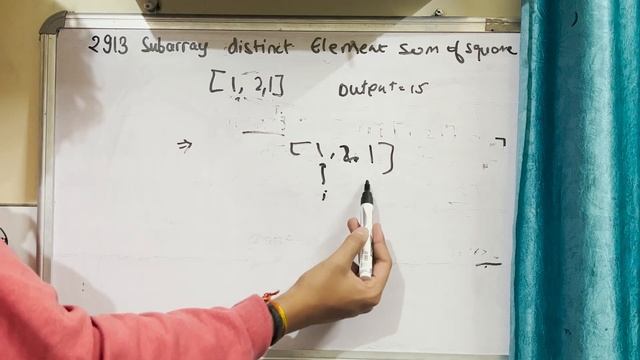 2913 Subarray distinct Element sum of square
[1, 2,1] Output=15
⇒ [1, 2, 1]
i